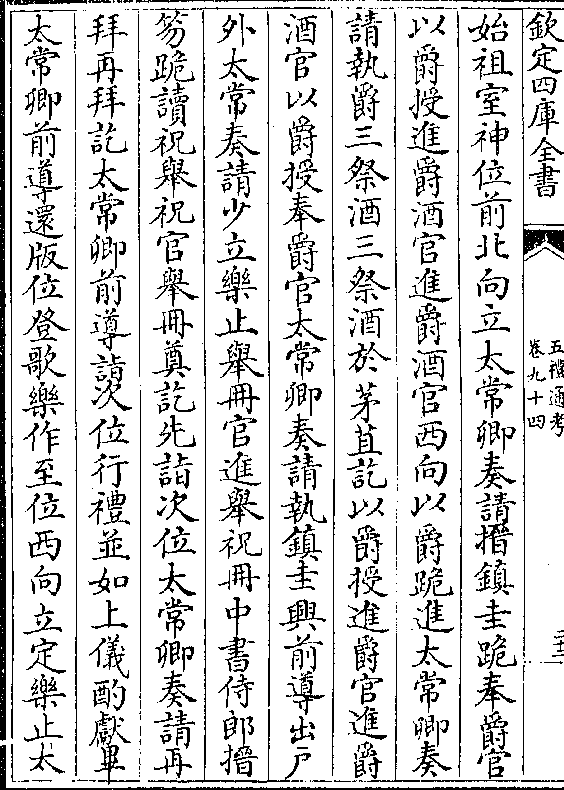 欽定四庫全書
五禮通考
卷九十四
始祖室神位前北向立太常卿奏請搢鎮圭跪奉爵官
以爵授進爵酒官進爵酒官西向以爵跪進太常卿奏
請執爵三祭酒三祭酒於茅苴訖以爵授進爵官進爵
酒官以爵授奉爵官太常卿奏請執鎮圭興前導出戶
外太常奏請少立樂止舉冊官進舉祝冊中書侍郎搢
笏跪讀祝舉祝官舉冊奠訖先詣次位太常卿奏請再
拜再拜訖太常卿前導詣次位行禮並如上儀酌獻畢
太常卿前導還版位登歌樂作至位西向立定樂止太